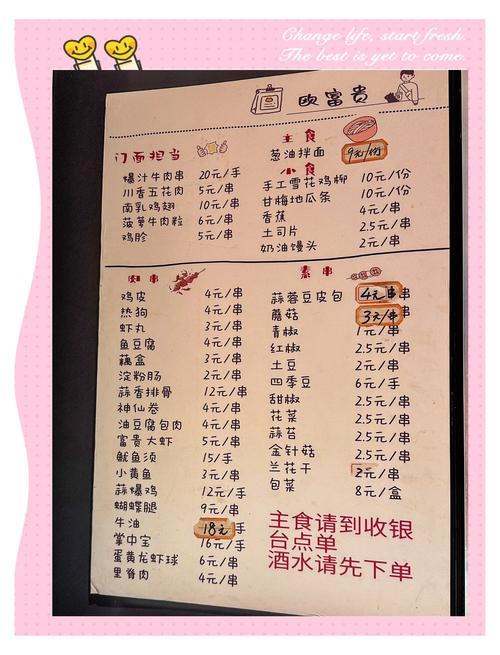 Change life, start fresh.
The best is yet to come.
欧富贵
门面担当
爆汁牛肉串 20元/手
川香五花肉 5元/串
南乳鸡翅 10元/串
菠萝牛肉粒 6元/串
鸡胗 5元/串
主食
葱油拌面 9元/份
小食
手工雪花鸡柳 10元/份
甘梅地瓜条 10元/份
香蕉 4元/串
土司片 2.5元/串
奶油馒头 2元/串
肉串
鸡皮 4元/串
热狗 4元/串
虾丸 3元/串
鱼豆腐 4元/串
藕盒 3元/串
淀粉肠 2元/串
蒜香排骨 12元/串
神仙卷 4元/串
油豆腐包肉 4元/串
富贵大虾 5元/串
鱿鱼须 15/手
小黄鱼 3元/串
蒜爆鸡 12元/手
蝴蝶腿 9元/串
牛油 18元手
掌中宝 16元/手
蛋黄龙虾球 6元/串
里脊肉 4元/串
素串
蒜蓉豆皮包 4元串
蘑菇 3元/串
青椒 1元/串
红椒 2.5元/串
土豆 2元/串
四季豆 6元/手
甜椒 2.5元/串
花菜 2.5元/串
蒜苔 2.5元/串
金针菇 2.5元/串
兰花干 2元/串
包菜 8元/盒
主食请到收银
台点单
酒水请先下单